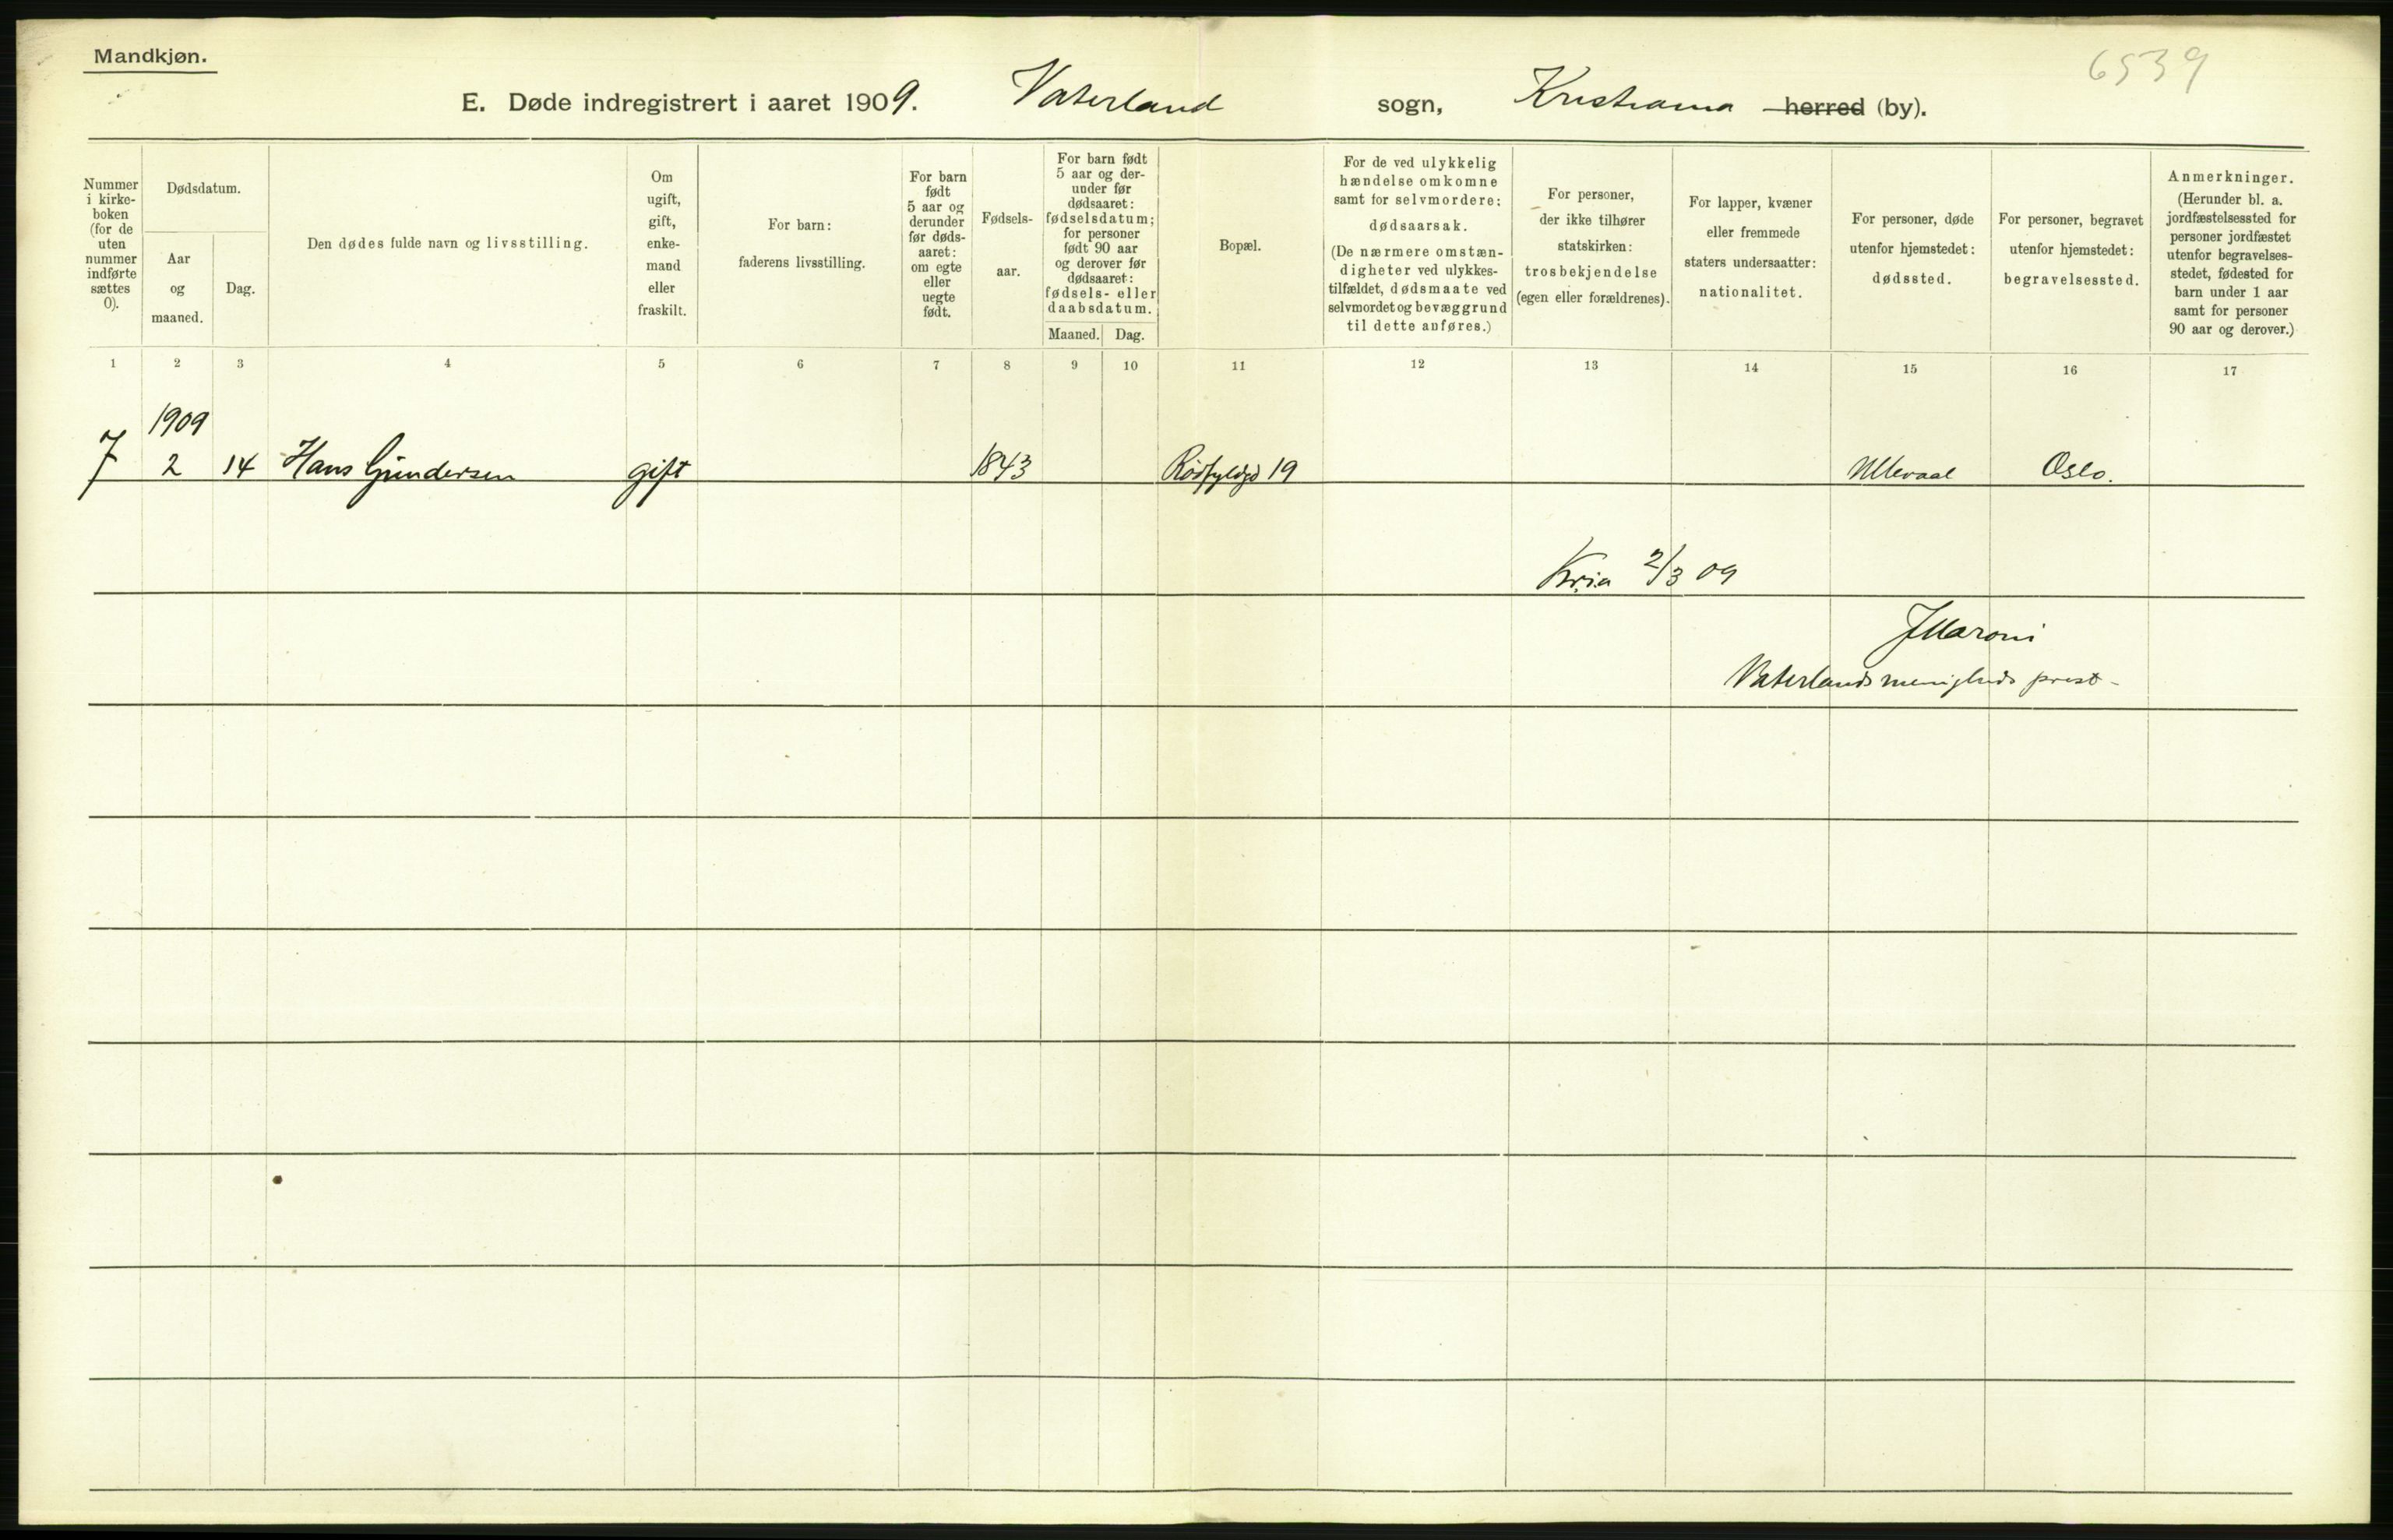 Mandkjøn.
6539
E. Døde indregistrert i aaret 1909. Vaterland sogn, Kristiania herred (by).
Nummer i kirke- boken (for de uten nummer indførte sættes 0).
Dødsdatum.
Aar og maaned.
Dag.
Den dødes fulde navn og livsstilling.
Om ugift, gift, enke- mand eller fraskilt.
For barn: faderens livsstilling.
For barn født 5 aar og derunder før døds- aaret: om egte eller uegte født.
Fødsels- aar.
For barn født 5 aar og der- under før dødsaaret: fødselsdatum; for personer født 90 aar og derover før dødsaaret: fødsels- eller daabsdatum.
Maaned. Dag.
Bopæl.
For de ved ulykkelig hændelse omkomne samt for selvmordere: dødsaarsak. (De nærmere omstæn- digheter ved ulykkes- tilfældet, dødsmaate ved selvmordet og bevæggrund til dette anføres.)
For personer, der ikke tilhører statskirken: trosbekjendelse (egen eller forældrenes).
For lapper, kvæner eller fremmede staters undersaatter: nationalitet.
For personer, døde utenfor hjemstedet: dødssted.
For personer, begravet utenfor hjemstedet: begravelsessted.
Anmerkninger. (Herunder bl. a. jordfæstelsessted for personer jordfæstet utenfor begravelses- stedet, fødested for barn under 1 aar samt for personer 90 aar og derover.)
1 2 3 4 5 6 7 8 9 10 11 12 13 14 15 16 17
1909
7 2 14 Hans Gundersen gift 1843 Rødfyldgd 19 Ullevaal Oslo.
Kria 2/3 09
J Maroni
Vaterlands menigheds prest